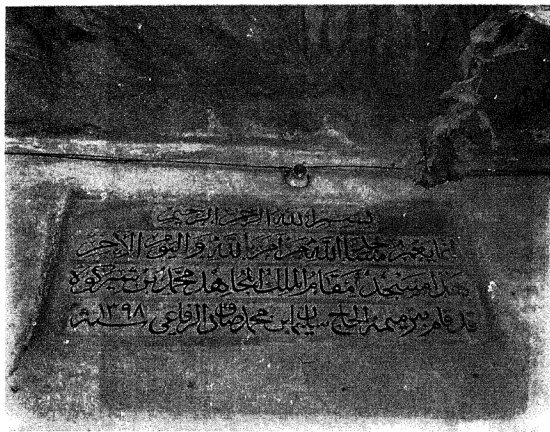 بسم الله الرحمن الرحيم
إنما يعمر مساجد الله من آمن بالله واليوم الآخر
هذا مسجد ومقام الملك المجاهد محمد بن شيركوه
قد قام بترميمه الحاج سليم بن محمد صادق الرفاعي سنة ١٣٩٨